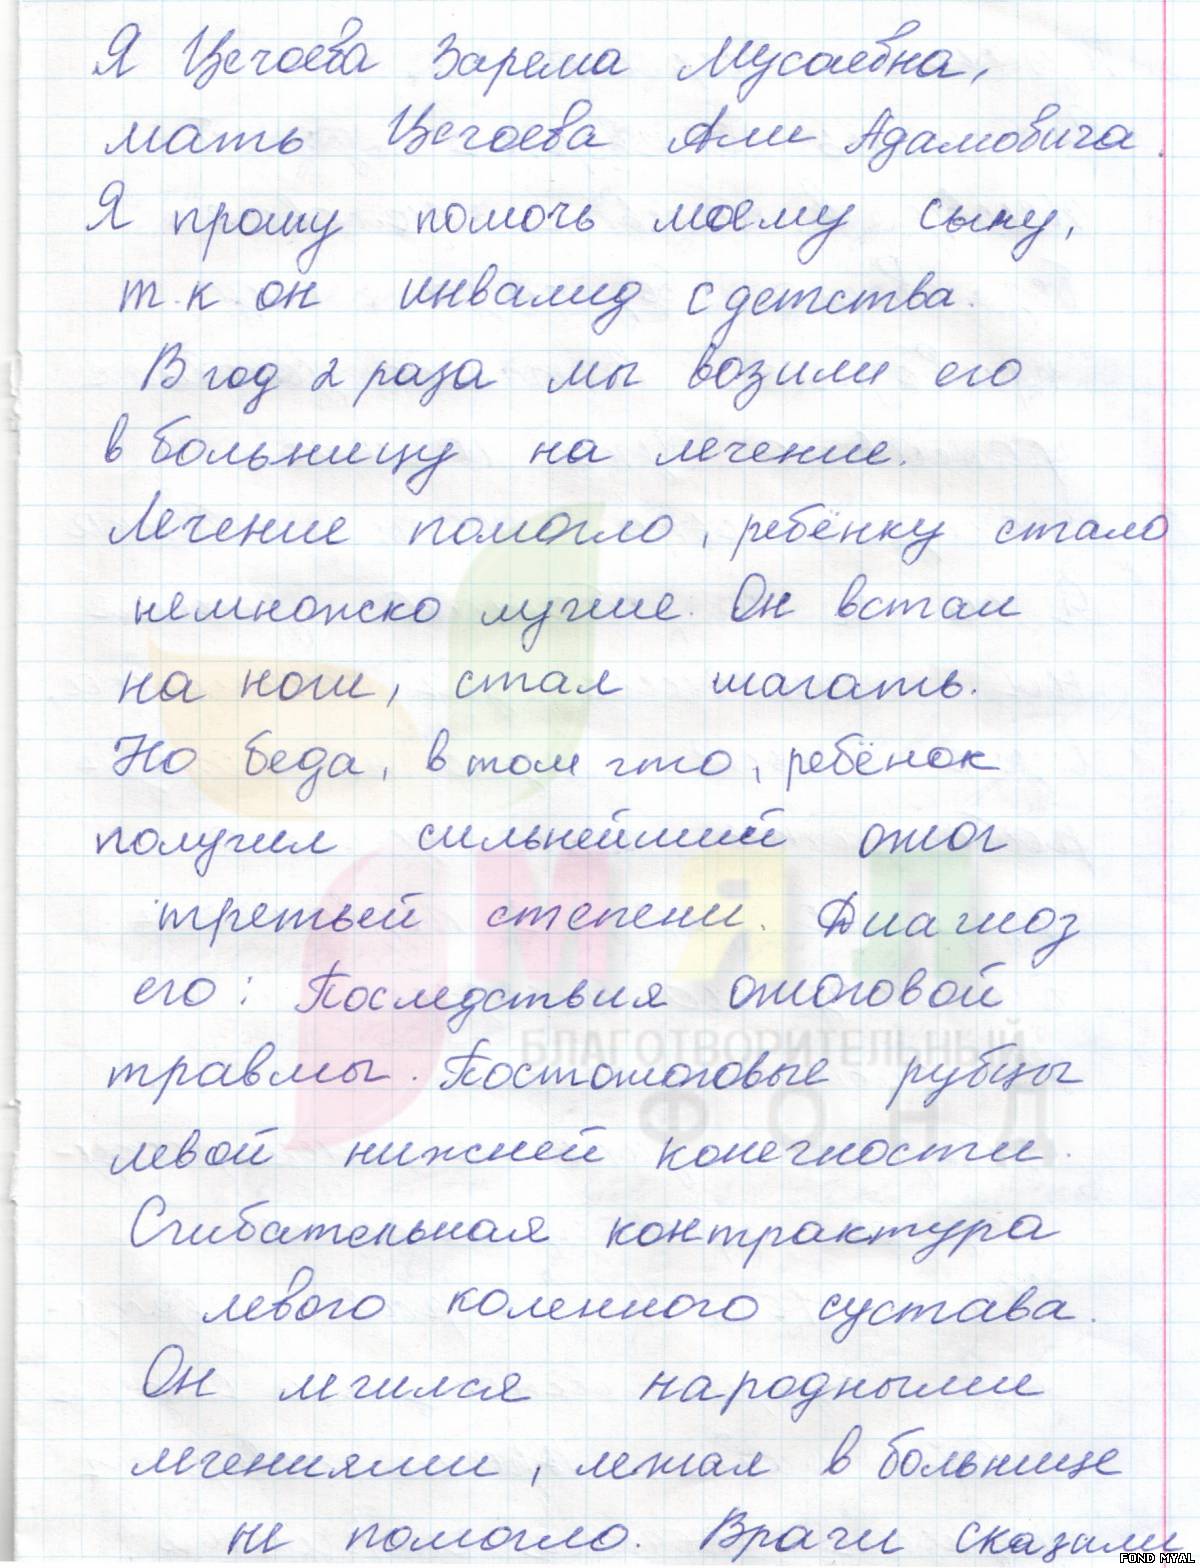 Я Цечоева Зарема Мусаевна,
мать Цечоева Али Адамовича.
Я прошу помочь моему сыну,
т.к. он инвалид с детства.
В год 2 раза мы возили его
в больницу на лечение.
Лечение помогло, ребёнку стало
немножко лучше. Он встал
на ноги, стал шагать.
Но беда, в том что, ребёнок
получил сильнейший ожог
третьей степени. Диагноз
его: Последствия ожоговой
травмы. Постожоговые рубцы
левой нижней конечности.
Сгибательная контрактура
левого коленного сустава.
Он лечился народными
лечениями, лежал в больнице
не помогло. Врачи сказали
МЯЛ
БЛАГОТВОРИТЕЛЬНЫЙ
ФОНД
FOND MYAL